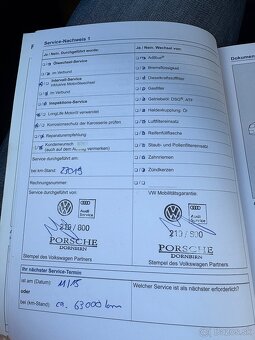 F
Service-Nachweis 1
Ja | Nein. Durchgeführt wurde:
Ja | Nein. Wechsel von:
Ölwechsel-Service
Im Verbund
Intervall-Service
inklusive Motorölwechsel
Im Verbund
Inspektions-Service
LongLife Motoröl verwendet
Korrosionsschutz der Karosserie prüfen
Reparaturempfehlung
Kundenwunsch
(auch auf dem Auftrag vermerken)
AdBlue®
Bremsflüssigkeit
Dieselkraftstofffilter
Gasfilter
Getriebeöl: DSG®, ATF
Haldexkupplung: Öl
Luftfiltereinsatz
Reifenfüllflasche
Staub- und Pollenfiltereinsatz
Zahnriemen
Zündkerzen
Service durchgeführt am:
bei km-Stand:
Datum:
Rechnungsnummer
Service durchgeführt von:
VW Mobilitätsgarantie:
Audi
Service
219 / 800
PORSCHE
DORNBIRN
Stempel des Volkswagen Partners
Audi
Service
219 / 800
PORSCHE
DORNBIRN
Stempel des Volkswagen Partners
Ihr nächster Service-Termin
ist am (Datum): 11/15
oder
bei (km-Stand): ca. 63000 km
Welcher Service ist als nächster erforderlich?
Dokumen